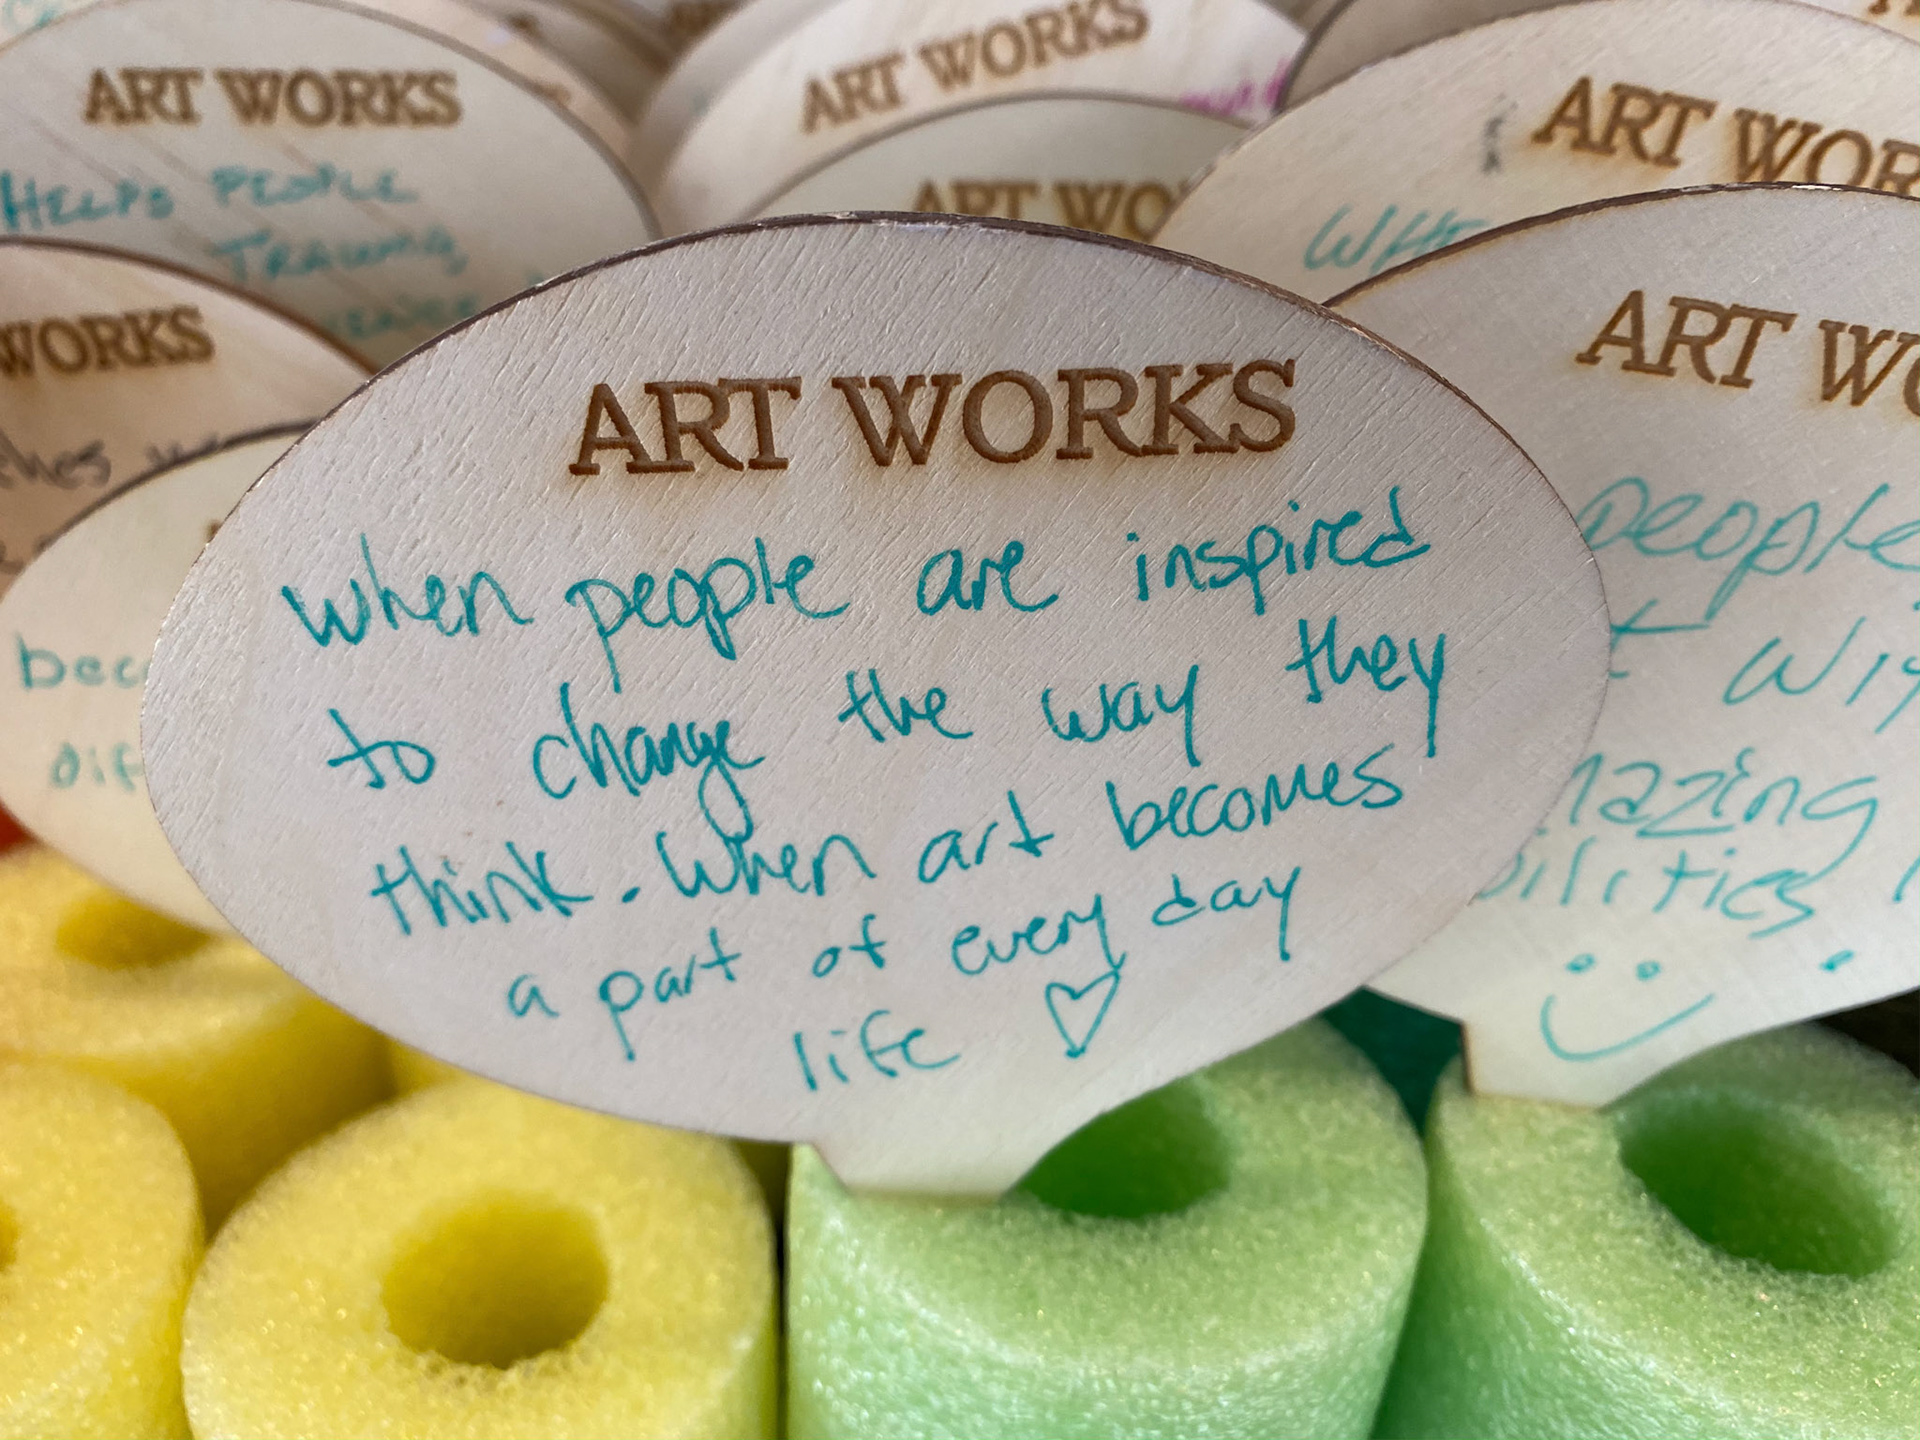 ART WORKS
HELPS PEOPLE
TRAUMA,
ART WORKS
ART WO
ART WOR
WHE
WORKS
ART WORKS
when people are inspired
to change the way they
think. When art becomes
a part of every day
life ♡
ART WO
people
wit
mazing
bilities
bec
dif